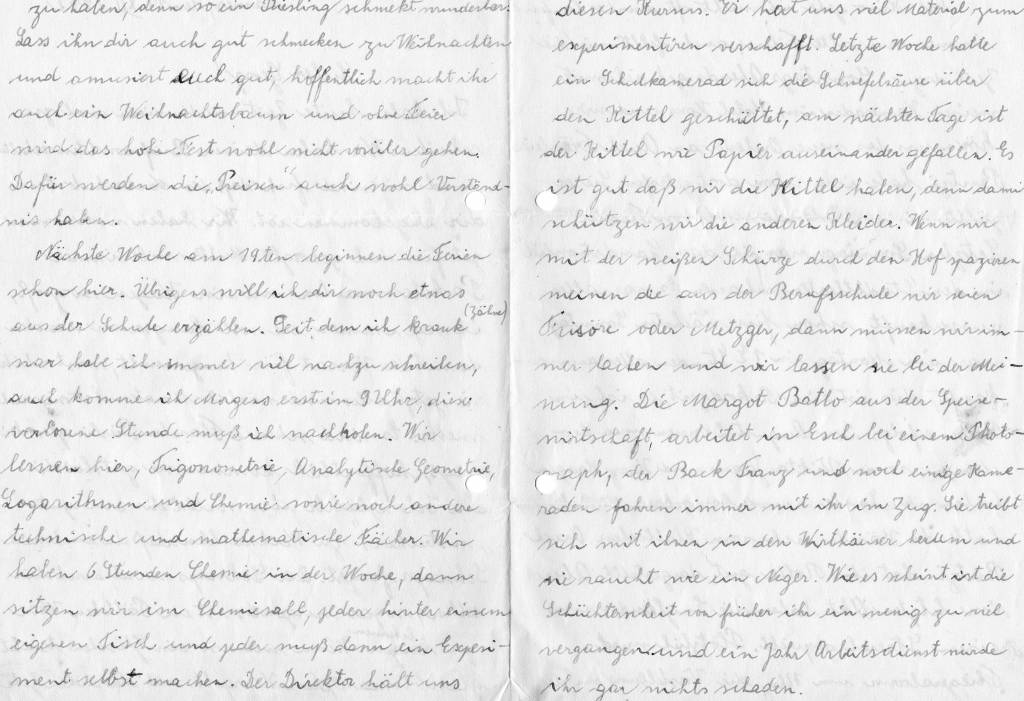 zu haben, denn so ein Riesling schmekt wunderbar.
Lass ihn dir auch gut schmecken zu Weihnachten
und amusiert euch gut, hoffentlich macht ihr
auch ein Weihnachtsbaum und ohne Feier
wird das hohe Fest wohl nicht vorüber gehen.
Dafür werden die „Preisen" auch wohl Verständ-
nis haben.
Nächste Woche am 19ten beginnen die Ferien
schon hier. Übrigens will ich dir noch etwas
aus der Schule erzählen. Seit dem ich krank (Zähne)
war habe ich immer viel nachzuschreiben,
auch komme ich Morgens erst in 9 Uhr, diese
verlorene Stunde muß ich nachholen. Wir
lernen hier, Trigonometrie, Analytische Geometrie,
Logarithmen und Chemie sowie noch andere
technische und mathematische Fächer. Wir
haben 6 Stunden Chemie in der Woche, dann
sitzen wir im Chemiesall, jeder hinter einem
eigenen Tisch und jeder muß dann ein Experi-
ment selbst machen. Der Direktor hält uns
diesen Kursus. Er hat uns viel Material zum
experimentiren verschafft. Letzte Woche hatte
ein Schulkamerad sich die Schwefelsäure über
den Kittel geschüttet, am nächsten Tage ist
der Kittel wie Papier auseinander gefallen. Es
ist gut daß wir die Kittel haben, denn dami
schützen wir die anderen Kleider. Wenn wir
mit der weißen Schürze durch den Hof spazieren
meinen die aus der Berufsschule wir seien
Frisöre oder Metzger, dann müssen wir im-
mer lachen und wir lassen sie bei der Mei-
nung. Die Margot Batto aus der Speise-
wirtschaft, arbeitet in Esch bei einem Photo-
raph, der Back Franz und noch einige Kame-
raden fahren immer mit ihr im Zug. Sie treibt
sich mit ihnen in den Wirthäuser herum und
sie raucht wie ein Neger. Wie es scheint ist die
Schüchternheit von früher ihr ein wenig zu viel
vergangen und ein Jahr Arbeitsdienst würde
ihr gar nichts schaden.